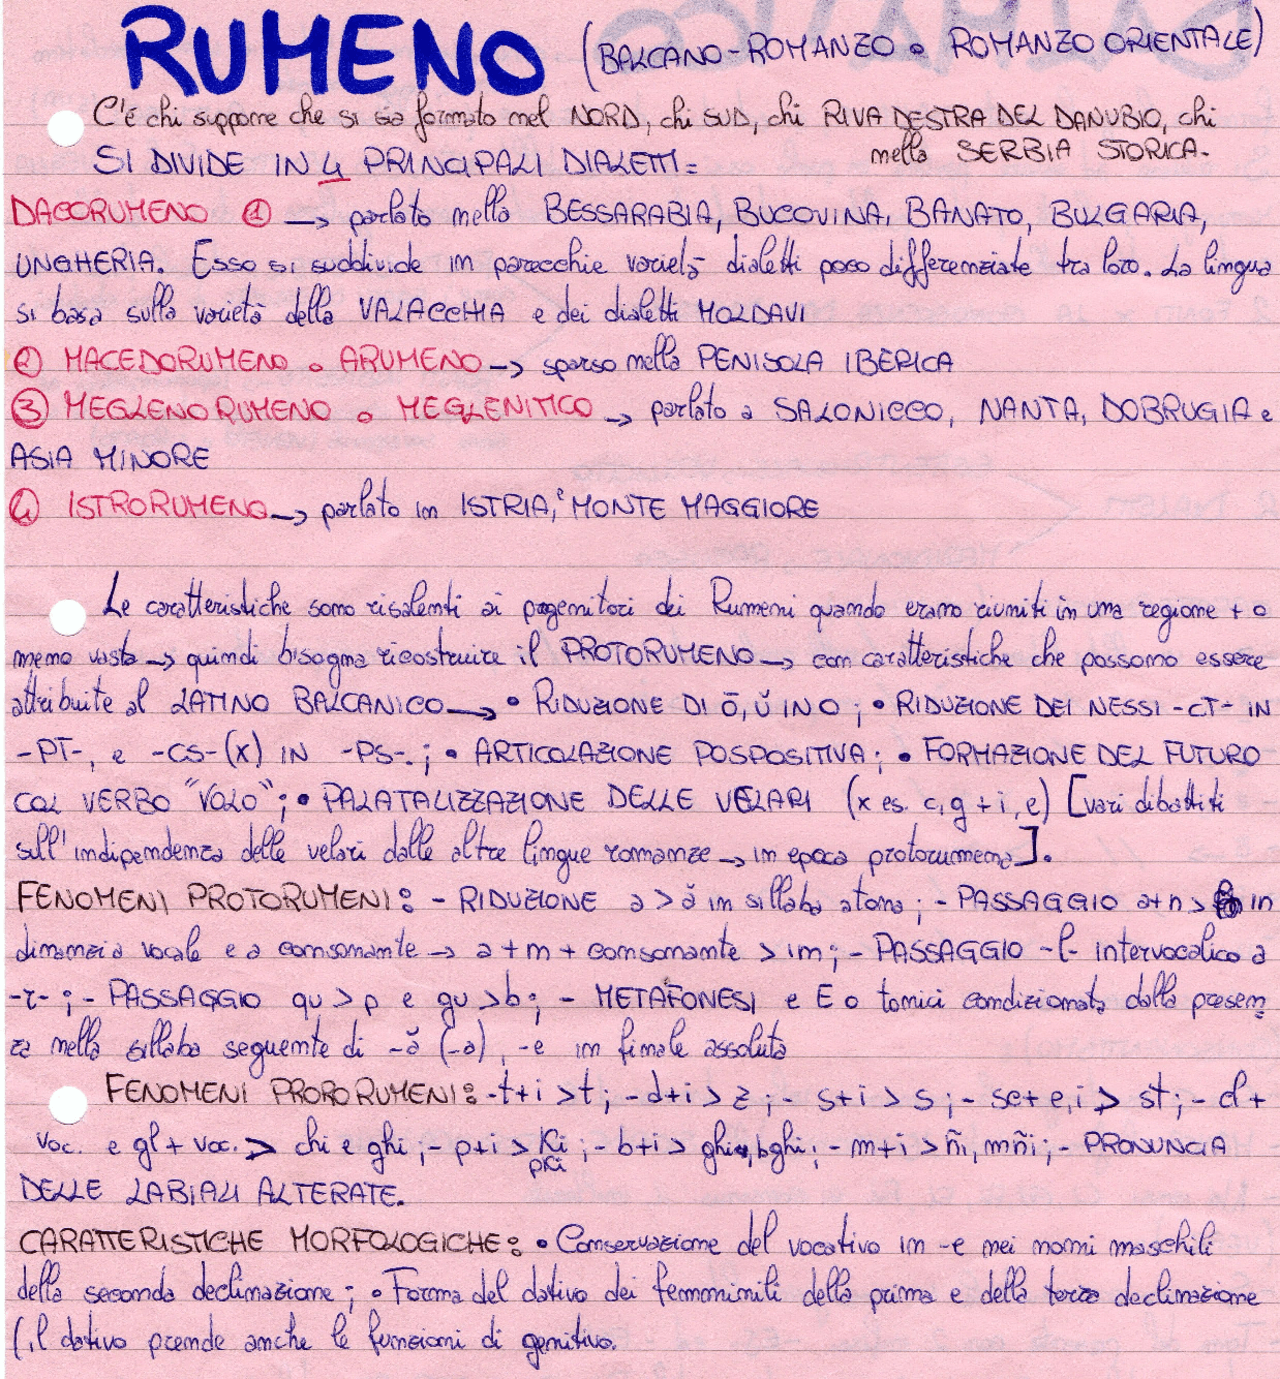 RUMENO (BALCANO-ROMANZO o ROMANZO ORIENTALE)
C'è chi suppone che si sia formato nel NORD, chi SUD, chi RIVA DESTRA DEL DANUBIO, chi
nella SERBIA STORICA.
SI DIVIDE IN 4 PRINCIPALI DIALETTI=
DACORUMENO ① → parlato nella BESSARABIA, BUCOVINA, BANATO, BULGARIA,
UNGHERIA. Esso si suddivide in parecchie varietà dialetti poco differenziate tra loro. La lingua
si basa sulla varietà della VALACCHIA e dei dialetti MOLDAVI
② MACEDORUMENO o ARUMENO → sparso nella PENISOLA IBERICA
③ MEGLENORUMENO o MEGLENITICO → parlato a SALONICCO, NANTA, DOBRUGIA e
ASIA MINORE
④ ISTRORUMENO → parlato in ISTRIA, MONTE MAGGIORE
Le caratteristiche sono risalenti ai progenitori dei Rumeni quando erano riuniti in una regione + o
meno vasta → quindi bisogna ricostruire il PROTORUMENO → con caratteristiche che possono essere
attribuite al LATINO BALCANICO → • RIDUZIONE DI ō, ŭ IN O ; • RIDUZIONE DEI NESSI -CT- IN
-PT-, e -CS-(x) IN -PS-. ; • ARTICOLAZIONE POSPOSITIVA ; • FORMAZIONE DEL FUTURO
COL VERBO "VOLO" ; • PALATALIZZAZIONE DELLE VELARI (x es. c, g + i, e) [vari dibattiti
sull'indipendenza delle velari dalle altre lingue romanze → in epoca protorumena].
FENOMENI PROTORUMENI: - RIDUZIONE a > ă in sillaba atona ; - PASSAGGIO a+n > in
dinanzi a vocale e a consonante → a + m + consonante > im ; - PASSAGGIO -l- intervocalico a
-r- ; - PASSAGGIO qu > p e gu > b ; - METAFONESI e E o tonici condizionata dalla presen
za nella sillaba seguente di -ă (-a), -e in finale assoluta
FENOMENI PROTORUMENI: -t+i > t ; - d+i > z ; - s+i > s ; - sc+e,i > st ; - cl +
voc. e gl + voc. > chi e ghi ; - p+i > Ki pKi ; - b+i > ghi, bghi ; - m+i > ñi, mñi ; - PRONUNCIA
DELLE LABIALI ALTERATE.
CARATTERISTICHE MORFOLOGICHE: • Conservazione del vocativo in -e nei nomi maschili
della seconda declinazione ; • Forma del dativo dei femminili della prima e della terza declinazione
(il dativo prende anche le funzioni di genitivo.